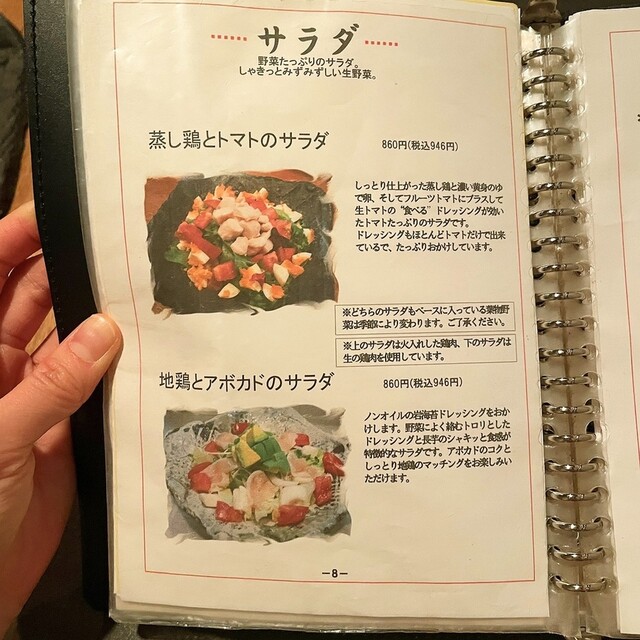 サラダ
野菜たっぷりのサラダ。
しゃきっとみずみずしい生野菜。
蒸し鶏とトマトのサラダ
860円(税込946円)
しっとり仕上がった蒸し鶏と濃い黄身のゆ
で卵、そしてフルーツトマトにプラスして
生トマトの“食べる”ドレッシングが効い
たトマトたっぷりのサラダです。
ドレッシングもほとんどトマトだけで出来
ているで、たっぷりおかけしています。
※どちらのサラダもベースに入っている葉物野
菜は季節により変わります。ご了承ください。
※上のサラダは火入れした鶏肉、下のサラダは
生の鶏肉を使用しています。
地鶏とアボカドのサラダ
860円(税込946円)
ノンオイルの岩海苔ドレッシングをおか
けします。野菜によく絡むトロリとした
ドレッシングと長芋のシャキッと食感が
特徴的なサラダです。アボカドのコクと
しっとり地鶏のマッチングをお楽しみい
ただけます。
－8－